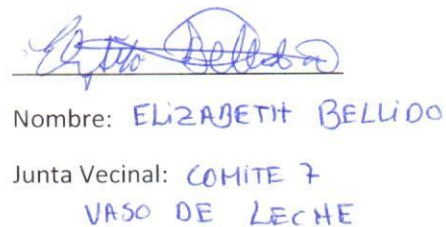 Nombre: ELIZABETH BELLIDO
Junta Vecinal: COMITE 7
VASO DE LECHE